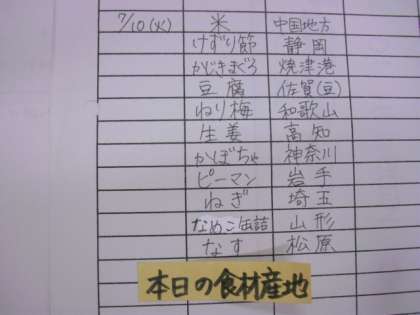 7/10(火) 米 中国地方
けずり節 静岡
かじきまぐろ 焼津港
豆腐 佐賀(豆)
ねり梅 和歌山
生姜 高知
かぼちゃ 神奈川
ピーマン 岩手
ねぎ 埼玉
なめこ缶詰 山形
なす 松原
本日の食材産地